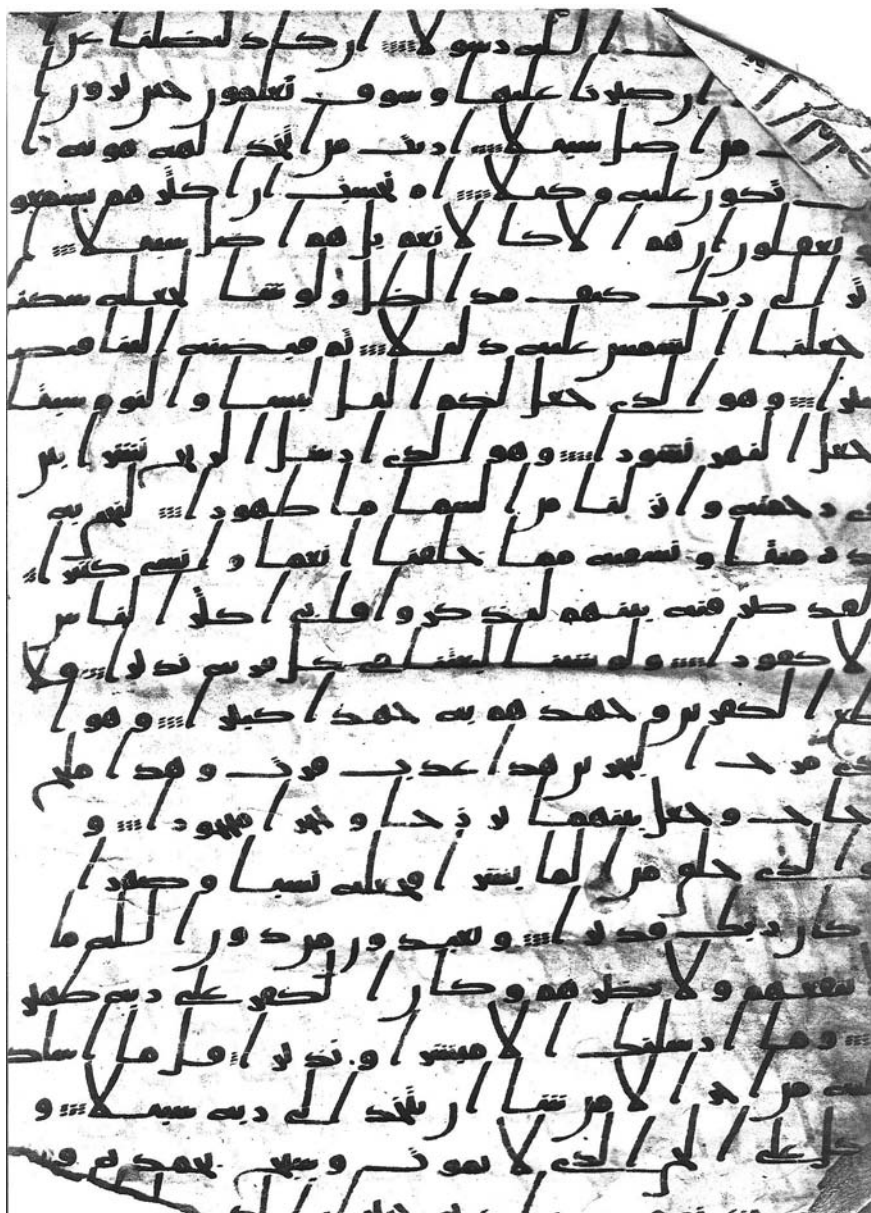 الله رسولا ان كاد ليضلنا عن
ان صبرنا عليها وسوف يعلمون حين يرون ا
ب من اضل سبيلا اريت من اتخذ الهه هويه ا
نت تكون عليه وكيلا ام تحسب ان اكثرهم يسمعو
ن او يعقلون ان هم الا كالانعم بل هم اضل سبيلا ا
لم تر الى ربك كيف مد الظل ولو شا لجعله سكنا
جعلنا الشمس عليه دليلا ثم قبضنه الينا قبضا
يسيرا وهو الذي جعل لكم اليل لبسا والنوم سبتا
جعل النهر نشورا وهو الذي ارسل الريح بشرا بين
يدي رحمته وانزلنا من السما ما طهورا لنحي به
بلدة ميتا ونسقيه مما خلقنا انعما وانسي كثيرا
لقد صرفنه بينهم ليذكروا فابى اكثر الناس
الا كفورا ولو شينا لبعثنا في كل قرية نذيرا فلا
تطع الكفرين وجهدهم به جهدا كبيرا وهو ا
لذي مرج البحرين هذا عذب فرت وهذا ملح
اجاج وجعل بينهما برزخا وحجرا محجورا و
هو الذي خلق من الما بشرا فجعله نسبا وصهرا
وكان ربك قديرا ويعبدون من دون الله ما
لا ينفعهم ولا يضرهم وكان الكفر على ربه ظهيرا
وما ارسلنك الا مبشرا ونذيرا قل ما اسلكم
عليه من اجر الا من شا ان يتخذ الى ربه سبيلا و
توكل على الحي الذي لا يموت وسبح بحمده و